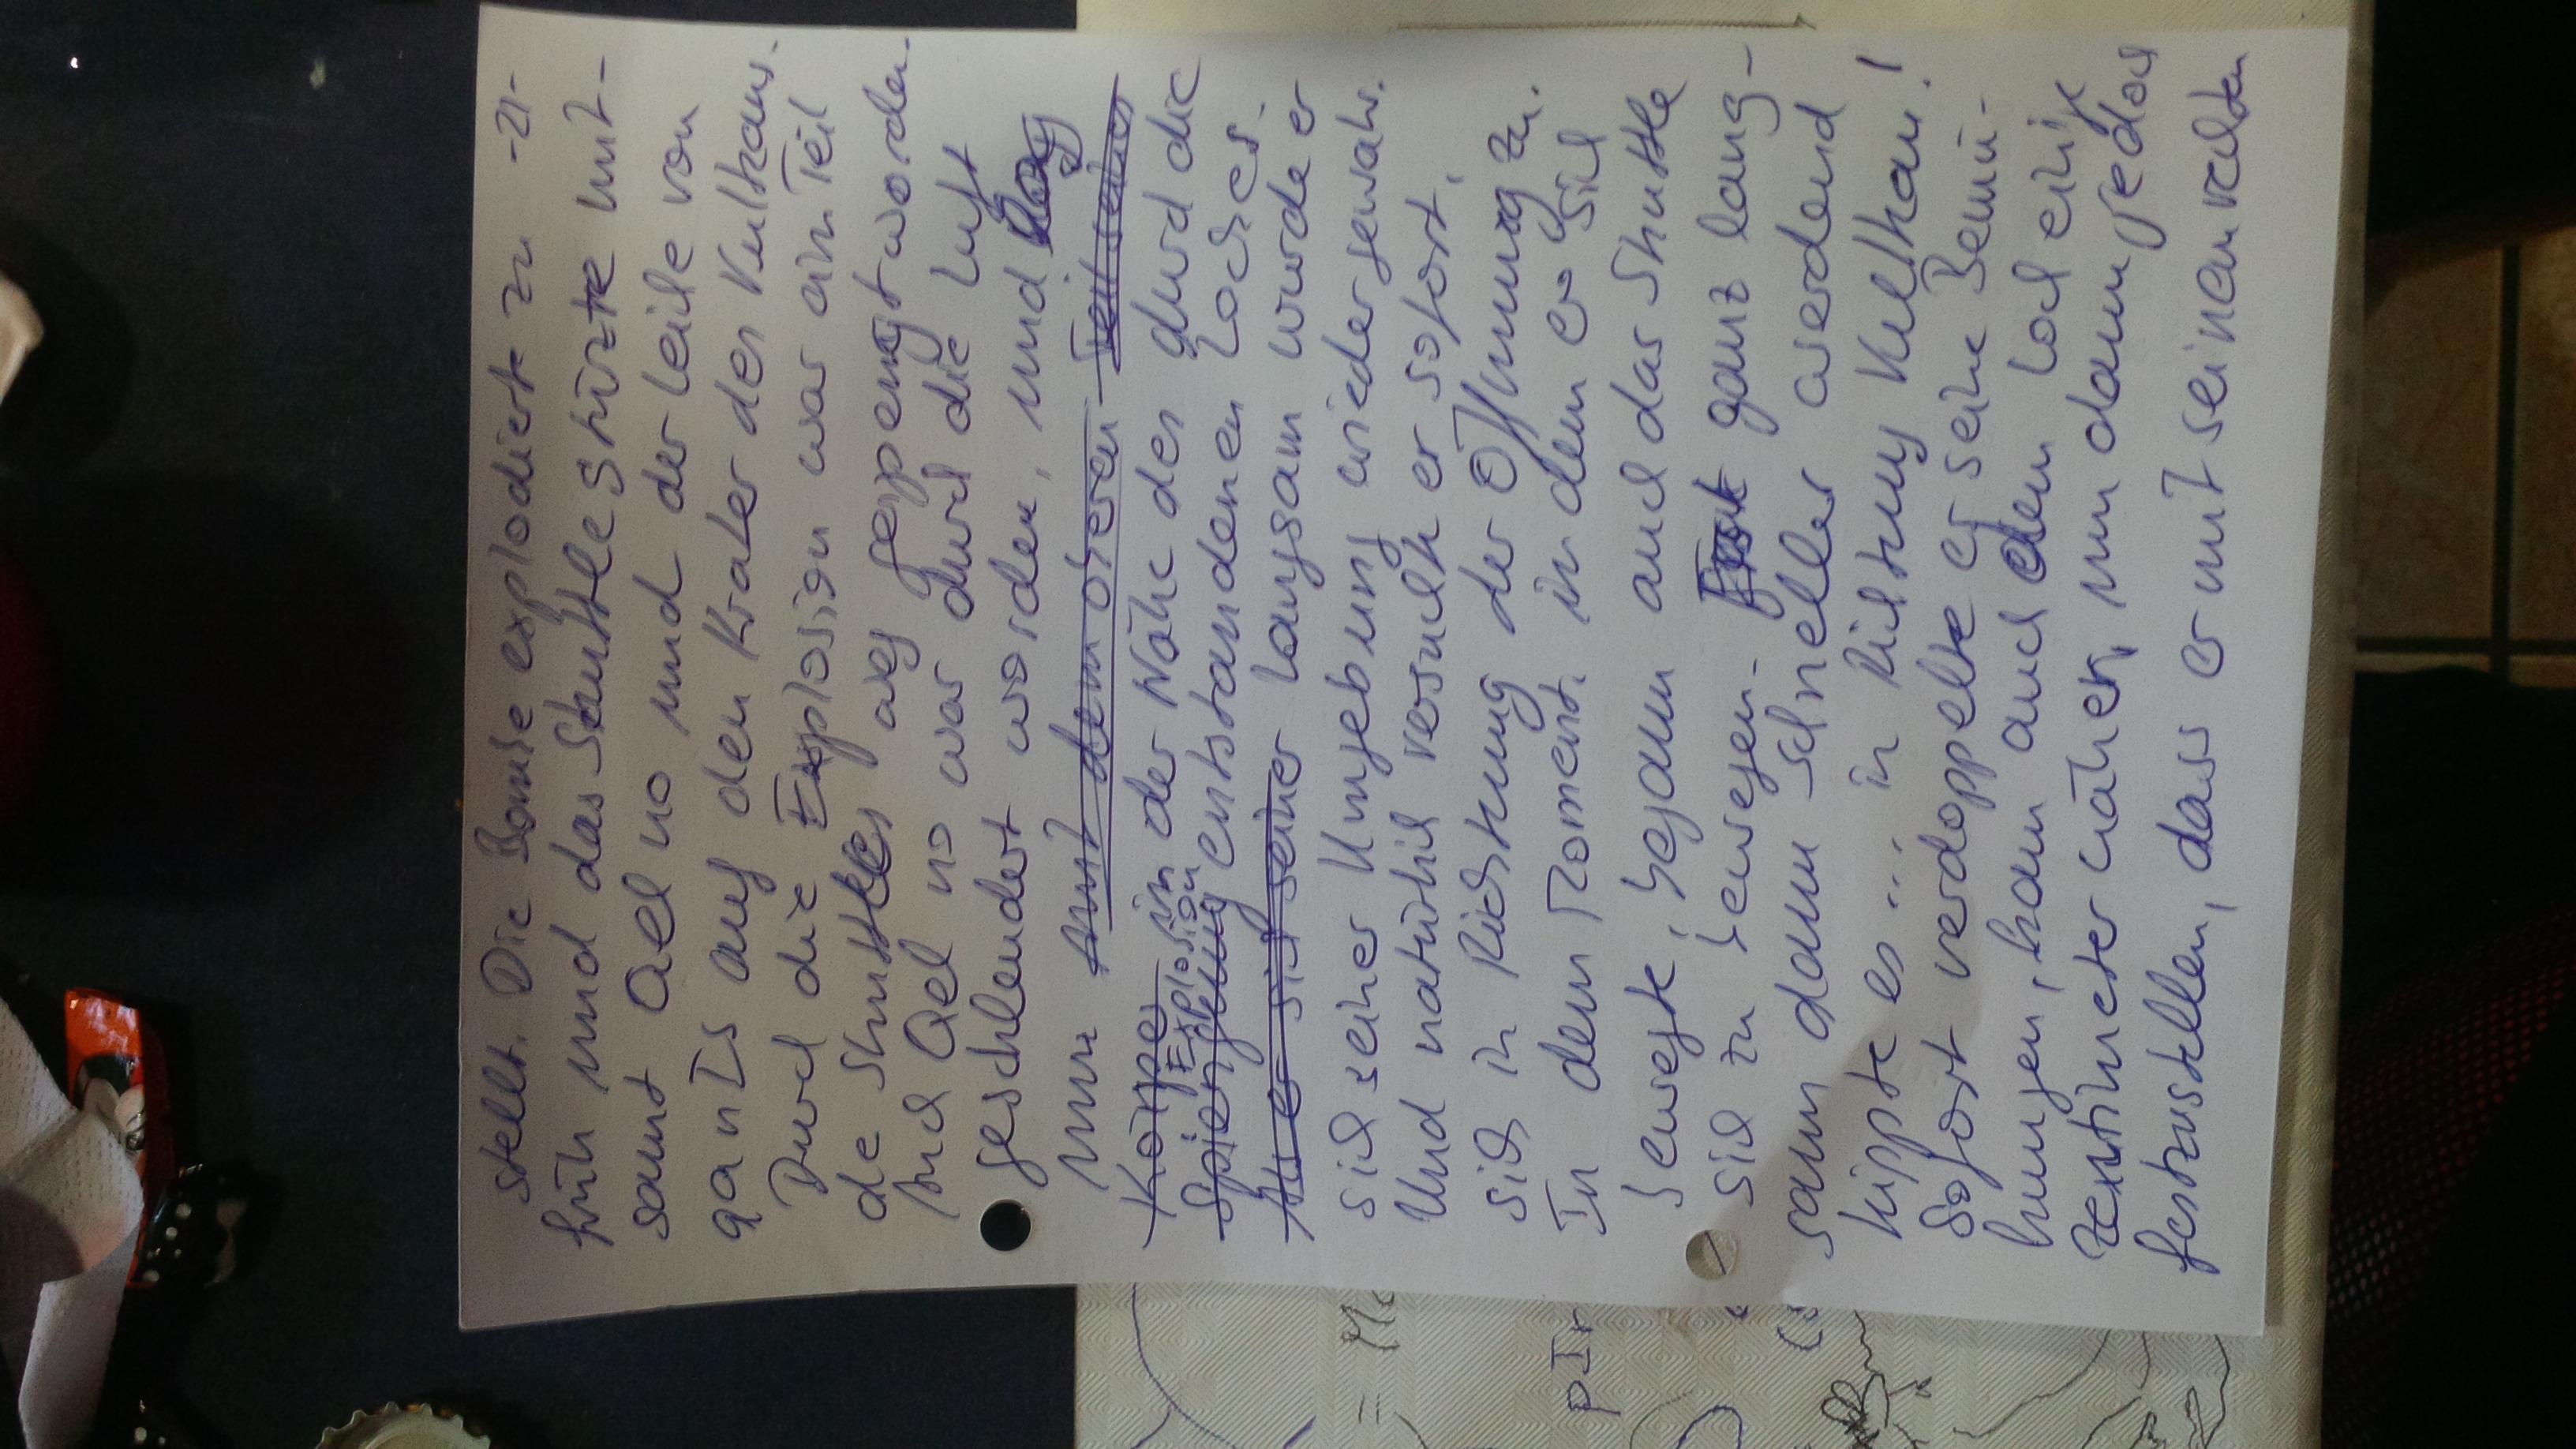 stellt. Die Bombe explodierte zu -21-
früh und das Shuttle stürzte mit-
samt Qel no und der Leile von
qa nIS auf den Krater des Vulkans.
Durch die Explosion war ein Teil
de Shuttles weg gesprengt worden
und Qel no war durch die Luft
geschleudert worden, und lag
nun mit dem oberen Teil seines
Körpes in der Nähe des durch die
Sprengung Explosion entstandenen Loches.
Als er sich seiner langsam wurde er
sich seiner Umgebung wieder gewahr.
Und natürlich versuchte er sofort,
sich in Richtung der Öffnung zu.
In dem Moment, in dem er sich
bewegte, begann auch das Shuttle
sich zu bewegen. ganz lang-
sam dann schneller werdend
kippte es... in Richtung Vulkan!
Sofort verdoppelte er seine Bemü-
hungen, kam auch dem Loch einige
Zentimeter näher, um dann jedoch
festzustellen, dass er mit seinem rechten
= 
pIr